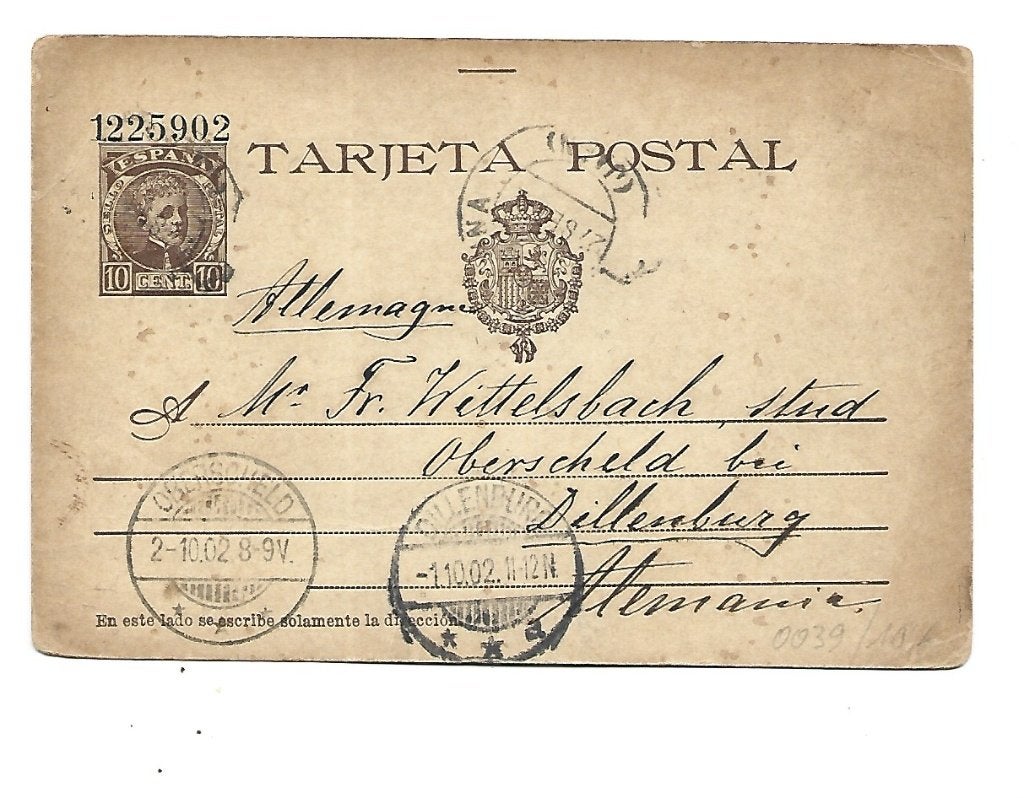 1225902
TARJETA POSTAL
ESPAÑA
SELLO POSTAL
10 CENT. 10
NA
Allemagne
A Mr Fr. Wittelsbach, stud
Oberscheld bei
Dillenburg
Alemania.
OBERSCHELD
2-10.02 8-9V.
DILLENBURG
-1.10.02. 11-12 N.
En este lado se escribe solamente la dirección
0039